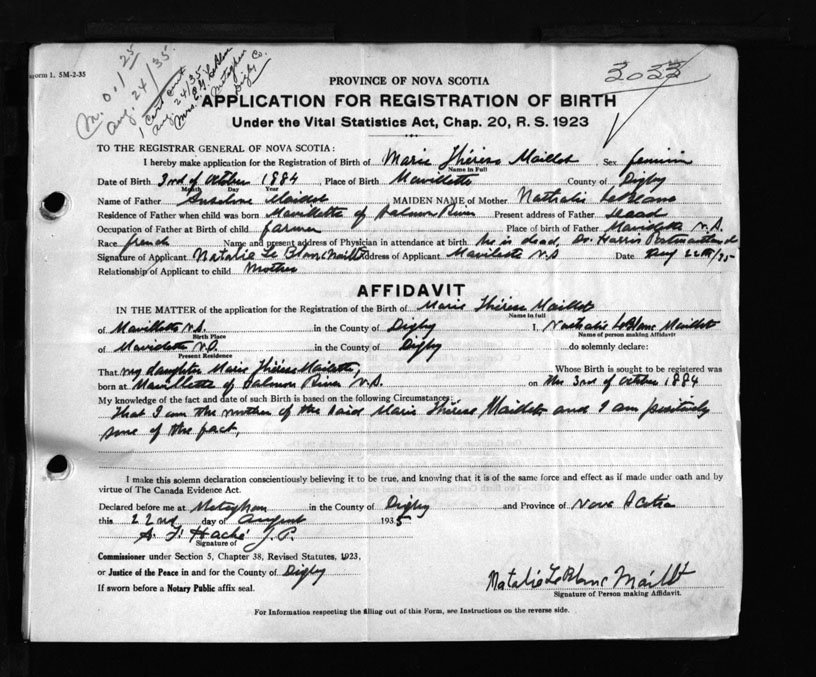 orm 1. 5M-2-35
M. O. 1/25
Aug. 24/35.
1 Cert sent
Aug 24/35.
Mrs. LeBlanc
Meteghan
Digby Co.
3033
PROVINCE OF NOVA SCOTIA
APPLICATION FOR REGISTRATION OF BIRTH
Under the Vital Statistics Act, Chap. 20, R. S. 1923
TO THE REGISTRAR GENERAL OF NOVA SCOTIA:
I hereby make application for the Registration of Birth of Marie Thérèse Maillet, Sex feminin
Name in Full
Date of Birth 3rd of October 1884, Place of Birth Mavillette County of Digby
Month Day Year
Name of Father Anselme Maillet MAIDEN NAME of Mother Nathalie LeBlanc
Residence of Father when child was born Mavillette of Salmon River Present address of Father dead
Occupation of Father at Birth of child farmer Place of birth of Father Mavillette N.S.
Race french Name and present address of Physician in attendance at birth he is dead, Dr. Harris
Signature of Applicant Natalie Le Blanc Maillet Address of Applicant Mavilette N S Date Aug 22th/35
Relationship of Applicant to child Mother
AFFIDAVIT
IN THE MATTER of the application for the Registration of the Birth of Marie Thérèse Maillet
Name in full
of Mavillette N.S. in the County of Digby I, Nathalie LeBlanc Maillet
Birth Place Name of person making Affidavit
of Mavilette N.S. in the County of Digby do solemnly declare:
Present Residence
That my daughter Marie Thérèse Maillette, Whose Birth is sought to be registered was
born at Mavillette of Salmon River N.S. on the 3rd of October 1884
My knowledge of the fact and date of such Birth is based on the following Circumstances:
That I am the mother of the said Marie Thérèse Maillet and I am positively
sure of the fact,
I make this solemn declaration conscientiously believing it to be true, and knowing that it is of the same force and effect as if made under oath and by
virtue of The Canada Evidence Act.
Declared before me at Meteghan in the County of Digby and Province of Nova Scotia
this 22nd day of August 1935
A. J. Haché J.P.
Signature of
Commissioner under Section 5, Chapter 38, Revised Statutes, 1923,
or Justice of the Peace in and for the County of Digby
If sworn before a Notary Public affix seal.
Natalie LeBlanc Maillet
Signature of Person making Affidavit.
For Information respecting the filling out of this Form, see Instructions on the reverse side.